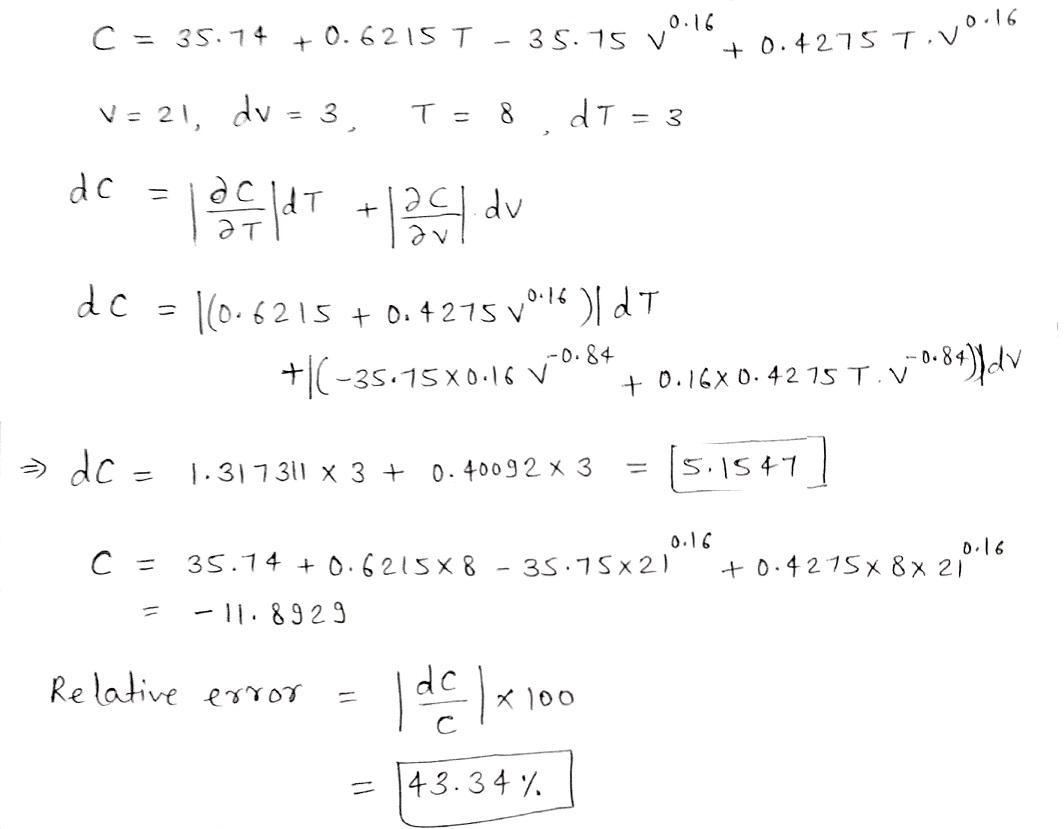 C = 35.74 + 0.6215 T - 35.75 v^0.16 + 0.4275 T.v^0.16
v = 21, dv = 3, T = 8, dT = 3
dC = |∂C/∂T| dT + |∂C/∂v|.dv
dC = |(0.6215 + 0.4275 v^0.16)| dT
+|(-35.75×0.16 v^-0.84 + 0.16×0.4275 T.v^-0.84)|dv
⇒ dC = 1.317311 × 3 + 0.40092 × 3 = 5.1547
C = 35.74 + 0.6215×8 - 35.75×21^0.16 + 0.4275×8×21^0.16
= -11.8929
Relative error = |dC/C| × 100
= 43.34 %